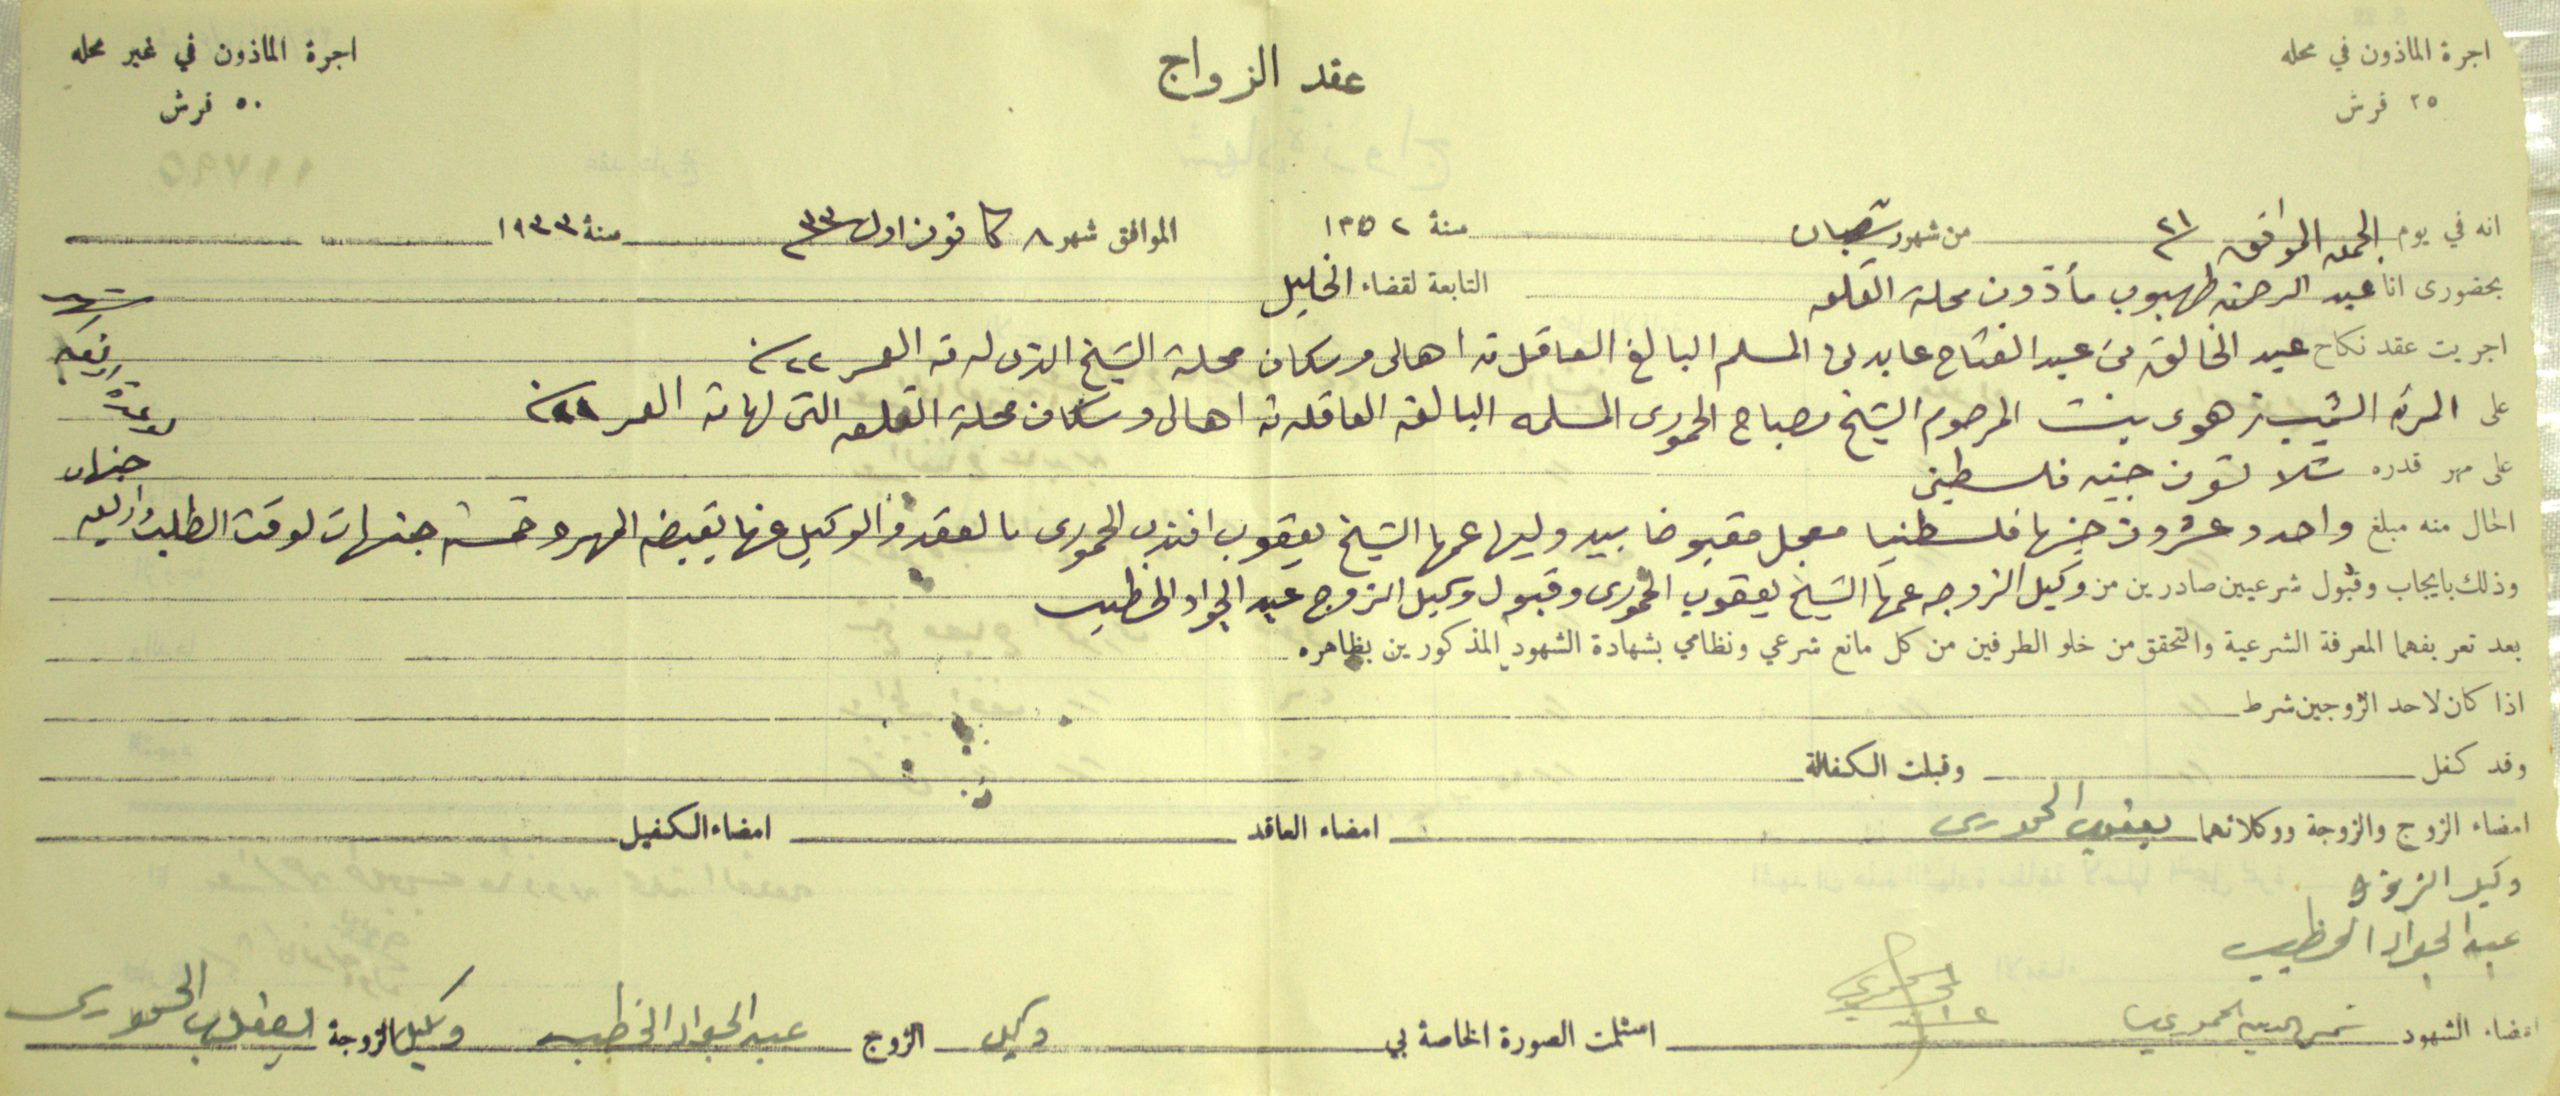 اجرة المأذون في محله
٢٥ قرش
عقد الزواج
اجرة المأذون في غير محله
٥٠ قرش
انه في يوم الجمعه الموافق ٢١ من شهر شعبان سنة ١٣٥٢ الموافق شهر ٨ كانون اول ٣٣ سنة ١٩٣٣
بحضوري انا عبد الرحمن طهبوب مأذون محلة القلعه التابعة لقضاء الخليل
اجريت عقد نكاح عبد الخالق بن عبد الفتاح عابدين المسلم البالغ العاقل من اهالي وسكان محلة الشيخ الذي له من العمر ٢٢
على المرأه الثيب زهوى بنت المرحوم الشيخ مصباح الحموري المسلمه البالغه العاقله من اهالي وسكان محلة القلعه التي لها من العمر
على مهر قدره ثلاثون جنيه فلسطيني
الحال منه مبلغ واحد وعشرون جنيها فلسطينيا معجل مقبوضا بيد وليها عمها الشيخ يعقوب افندي الحموري بالعقد والوكيل عنها بقبض المهر وخمسة جنيهات لوقت الطلب واربعه
جنيهات
وذلك بايجاب وقبول شرعيين صادرين من وكيل الزوجه عمها الشيخ يعقوب الحموري وقبول وكيل الزوج عبد الجواد الخطيب
بعد تعريفهما المعرفة الشرعية والتحقق من خلو الطرفين من كل مانع شرعي ونظامي بشهادة الشهود المذكورين بظاهره
اذا كان لاحد الزوجين شرط
وقد كفل وقبلت الكفالة
امضاء الزوج والزوجة ووكلائهما يعقوب الحموري امضاء العاقد امضاء الكفيل
وكيل الزوج
عبد الجواد الخطيب
امضاء الشهود شمس الدين الحموري استلمت الصورة الخاصة بي وكيل الزوج عبد الجواد الخطيب وكيل الزوجة يعقوب الحموري